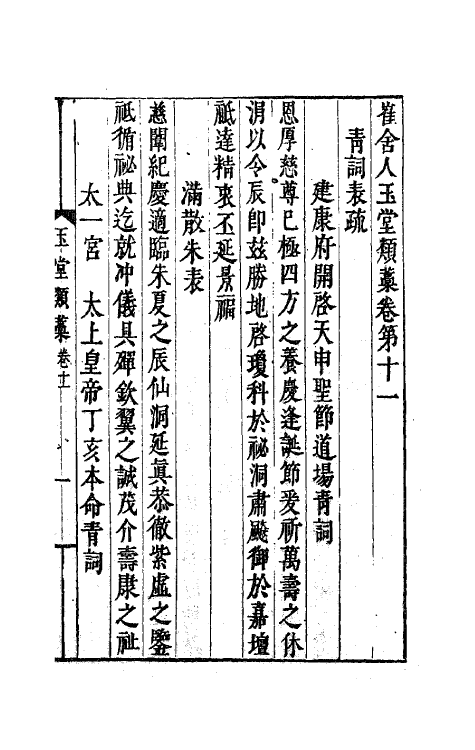 崔舍人玉堂類藁卷第十一
青詞表疏
建康府開啓天申聖節道場青詞
恩厚慈尊已極四方之養慶逢誕節爰祈萬壽之休
涓以令辰卽兹勝地啓瓊科於祕洞肅飈御於嘉壇
祗達精衷丕延景福
滿散朱表
慈闈紀慶適臨朱夏之辰仙洞延眞恭徹紫虛之鑒
祗循祕典迄就冲儀具殫欽翼之誠茂介壽康之祉
太一宮 太上皇帝丁亥本命青詞
玉堂類藁 卷十一 一